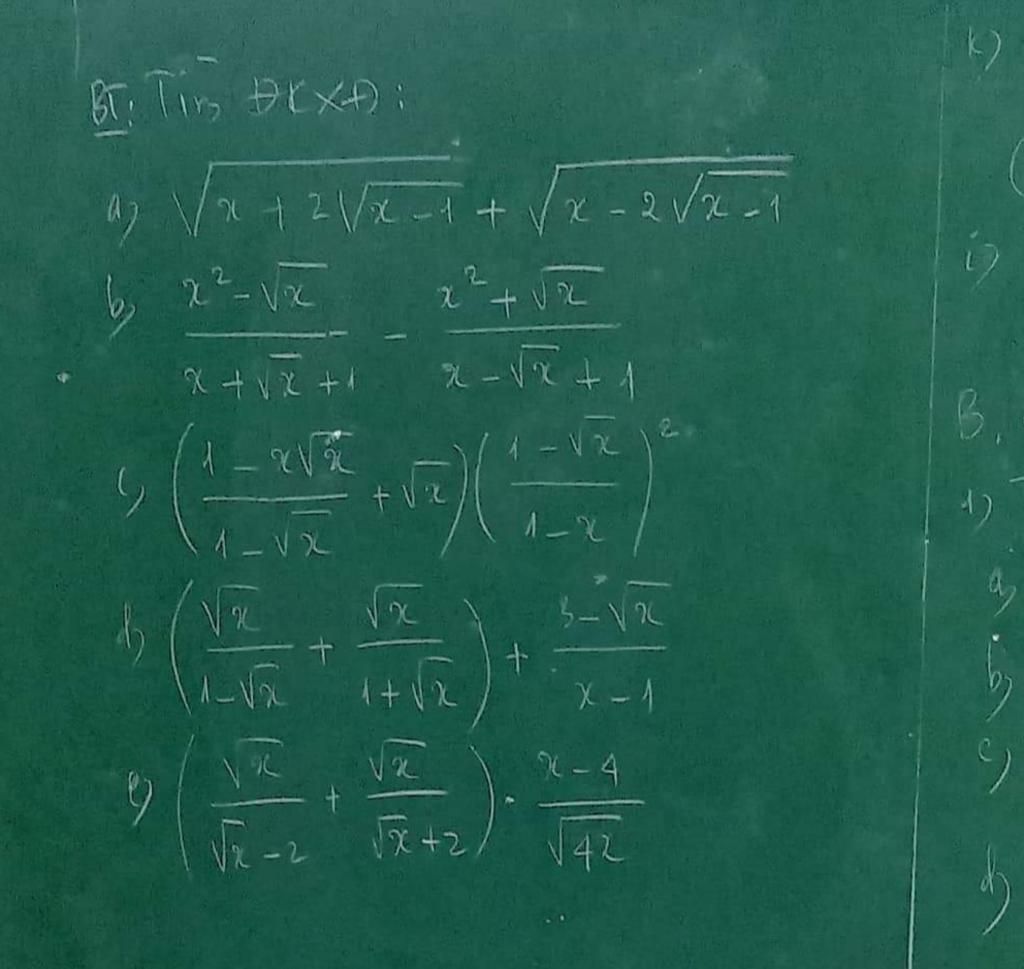 BT: Tìm ĐKXĐ:
a) √(x + 2√(x - 1)) + √(x - 2√(x - 1))
b) (x² - √x)/(x + √x + 1) - (x² + √x)/(x - √x + 1)
c) ((1 - x√x)/(1 - √x) + √x)((1 - √x)/(1 - x))²
d) (√x/(1 - √x) + √x/(1 + √x)) + (3 - √x)/(x - 1)
e) (√x/(√x - 2) + √x/(√x + 2)) · (x - 4)/√4x
k)
i)
B.
1)
a)
b)
c)
d)